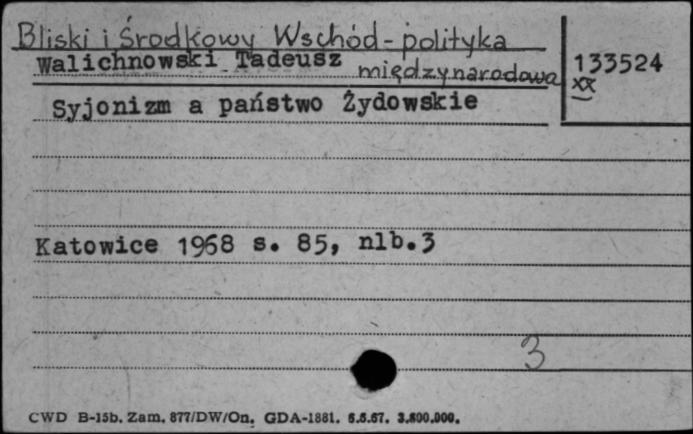 Bliski i Środkowy Wschód - polityka
międzynarodowa
Walichnowski Tadeusz
133524
XX
Syjonizm a państwo Żydowskie
Katowice 1968 s. 85, nlb.3
3
CWD B-15b. Zam. 877/DW/On. GDA-1881. 6.6.67. 3.800.000.